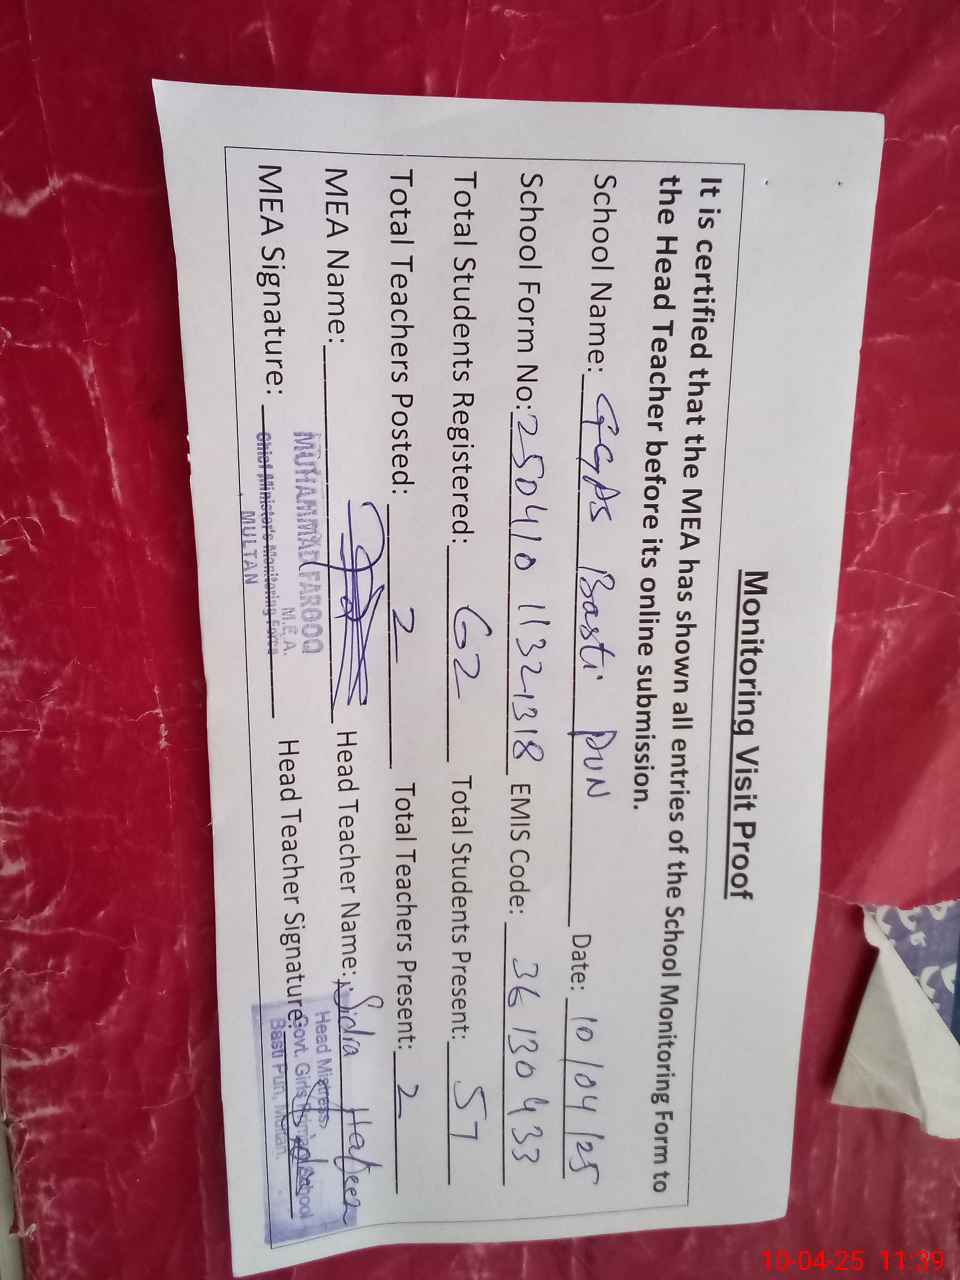 Monitoring Visit Proof
It is certified that the MEA has shown all entries of the School Monitoring Form to
the Head Teacher before its online submission.
School Name: GGPS Basti PUN Date: 10/04/25
School Form No: 250410 11321318 EMIS Code: 36130433
Total Students Registered: 62 Total Students Present: 57
Total Teachers Posted: 2 Total Teachers Present: 2
MEA Name: Head Teacher Name: Sidra Hafeez
MUHAMMAD FAROOQ
M.E.A.
MEA Signature: Head Teacher Signature:
Chief Minister's Monitoring Force
MULTAN
Head Mistress,
Govt. Girls Primary School
Basti Pun, Multan.
10-04-25 11:39